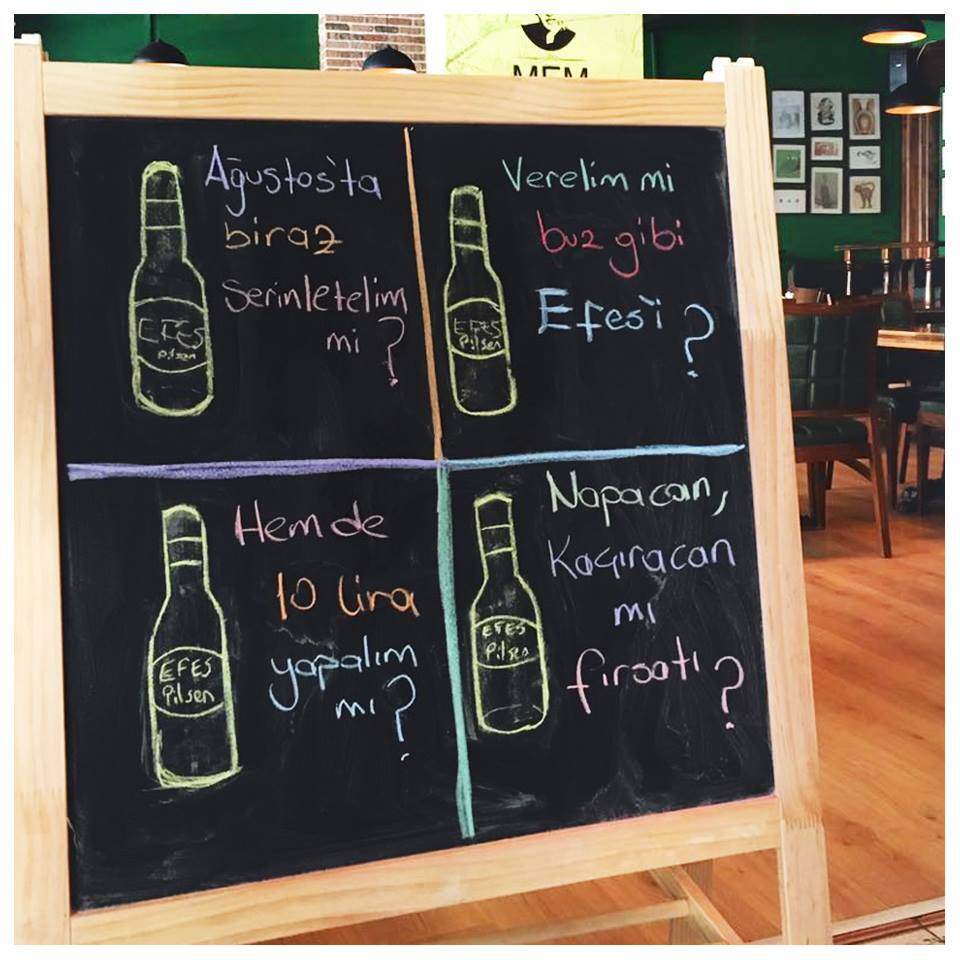 MEM
Ağustos'ta
biraz
Serinletelim
mi ?
EFES
Pilsen
Verelim mi
buz gibi
Efes'i ?
EFES
Pilsen
Hem de
10 lira
yapalım
mı ?
EFES
Pilsen
Napacan,
Kaçıracan
mı
fırsatı ?
EFES
Pilsen